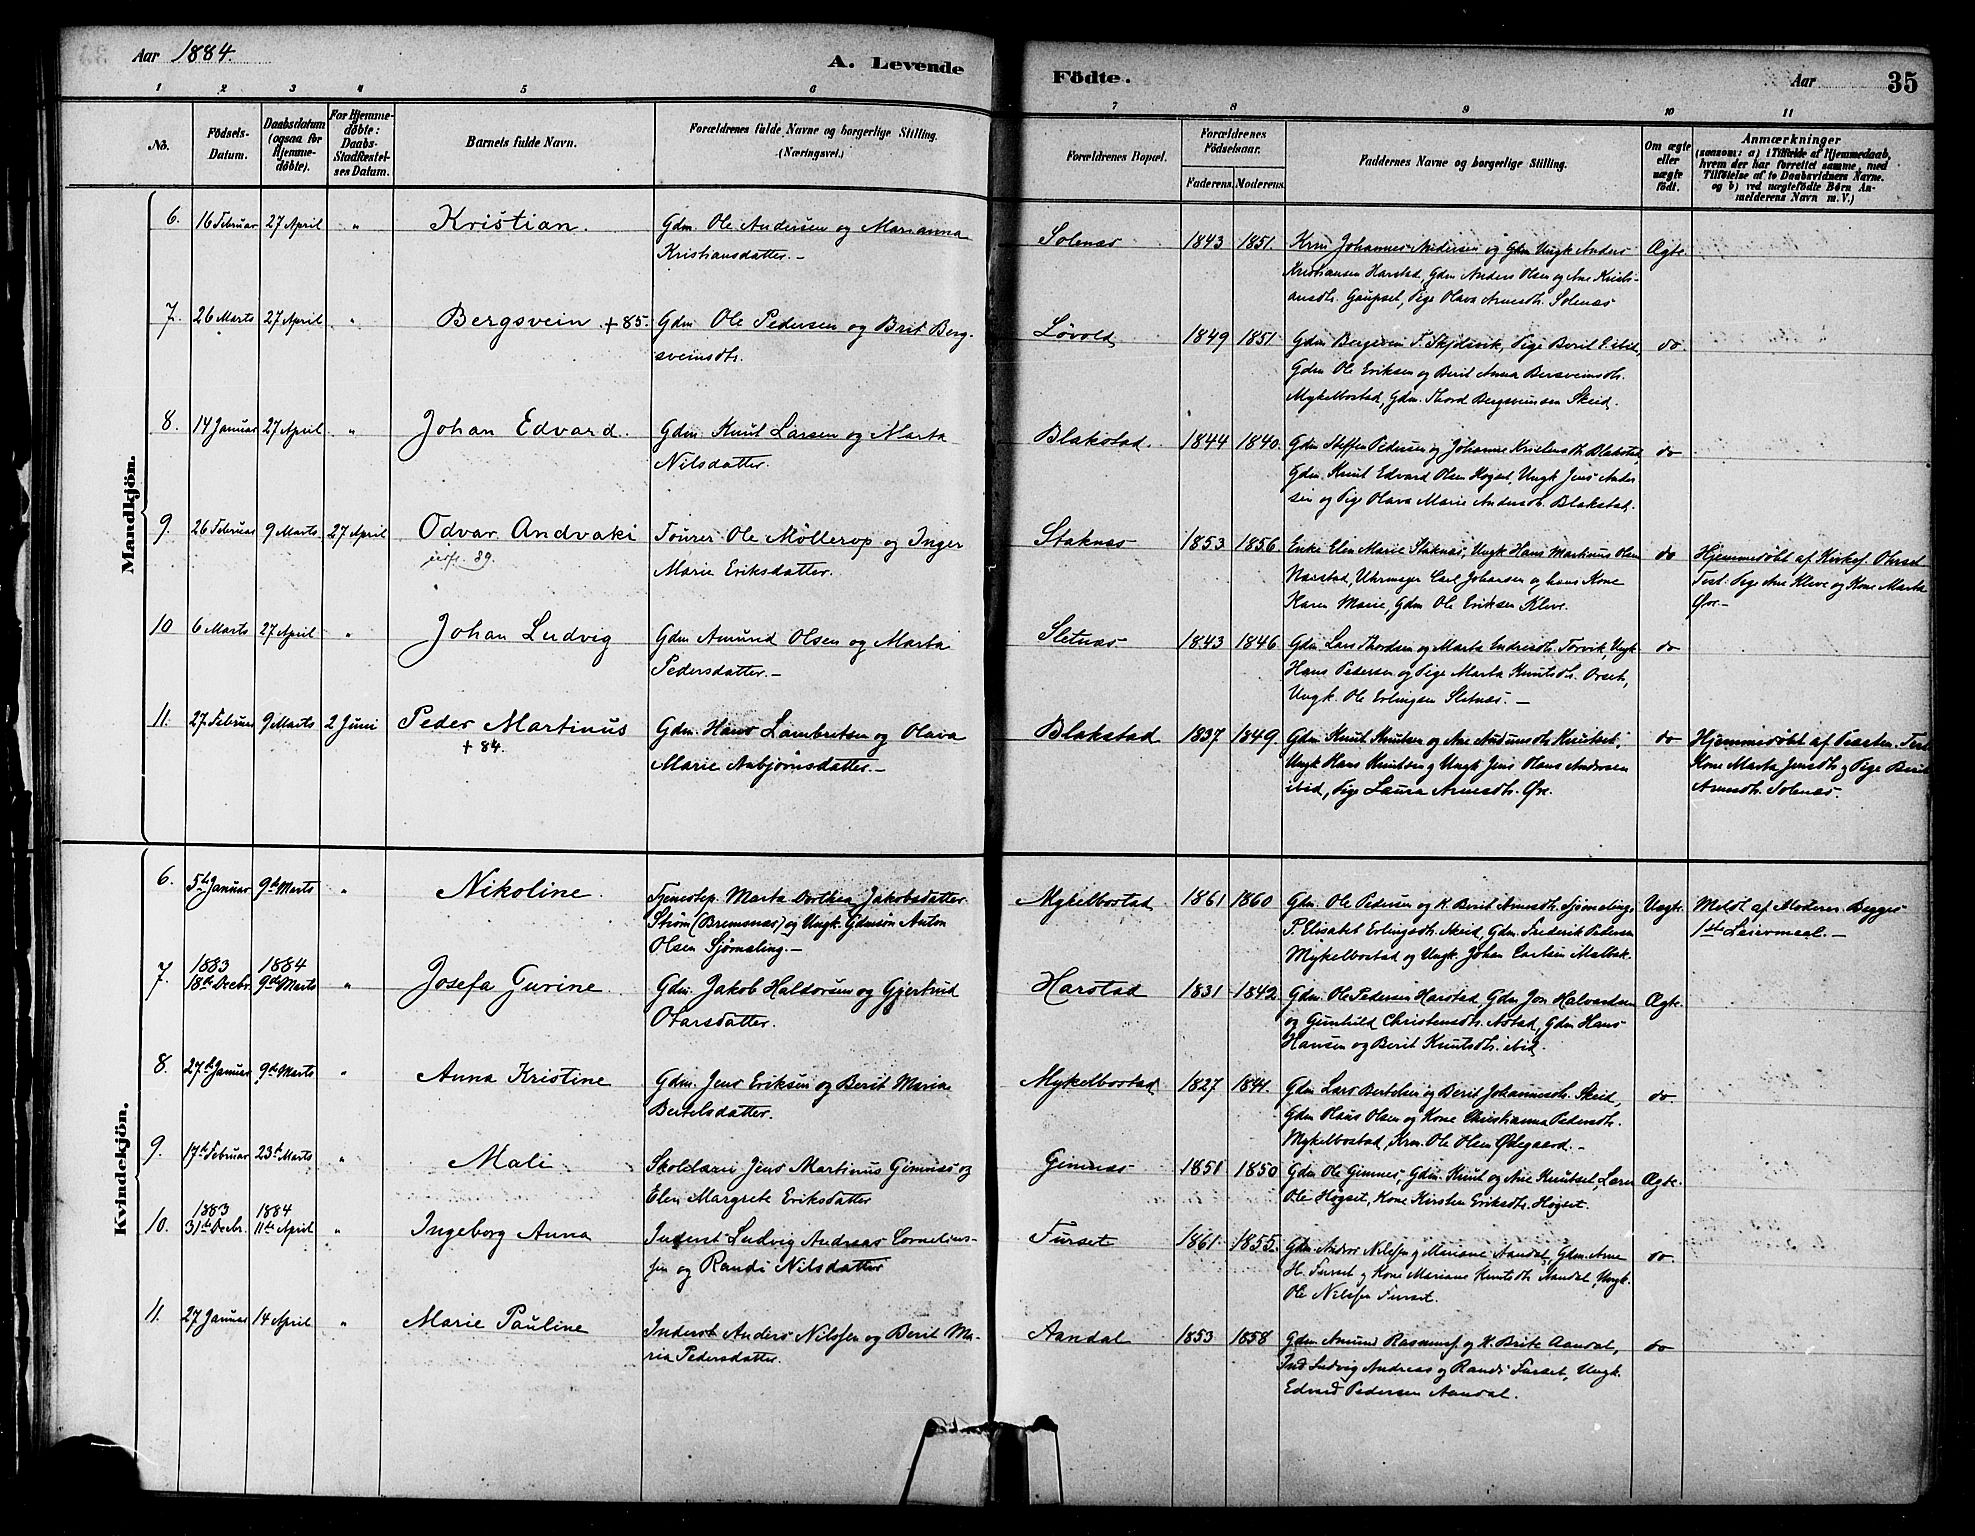 Aar 1884.
A. Levende
Födte.
Aar
35
1 2 3 4 5 6 7 8 9 10 11
No.
Födsels-
Datum.
Daabsdatum
(ogsaa for
Hjemme-
döbte).
For Hjemme-
döbte:
Daabs-
Stadfæstel-
ses Datum.
Barnets fulde Navn.
Forældrenes fulde Navne og borgerlige Stilling.
(Næringsvei.)
Forældrenes Bopæl.
Forældrenes
Födselsaar.
Faderens. Moderens.
Faddernes Navne og borgerlige Stilling.
Om ægte
eller
uægte
födt.
Anmærkninger
(saasom: a) i Tilfælde af Hjemmedaab,
hvem der har forrettet samme, med
Tilföielse af to Daabsvidners Navne.
og b) ved uægtefödte Börn An-
melderens Navn m. V.)
Mandkjön.
6. 16 Februar 27 April " Kristian. Gdm. Ole Andersen og Marianna
Kristiansdatter.-
Solenæs 1843 1851. Krm Johannes Andersen og Gdm Ungk Anders Ægte.
Kristiansen Harstad, Gdm Anders Olsen og Ane Kristi-
ansdtr. Gaupset, Pige Olava Arnesdtr. Solenæs
7. 26 Marts 27 April " Bergsvein. + 85. Gdm Ole Pedersen og Brit Berg-
sveinsdtr.
Løvold 1849 1851. Gdm Bergsvein T. Skjelsvik, Pige Beril ibid, do.
Gdm Ole Eriksen og Berit Anna Bersveinsdtr.
Mykelbostad, Gdm. Thord Bergsveinsen Skeid.
8. 14 Januar 27 April " Johan Edvard. Gdm Knut Larsen og Marta
Nilsdatter.
Blakstad. 1844 1840. Gdm Steffen Pedersen og Johanne Kristensdtr. Blakstad, do
Gdm. Knut Edvard Olsen Høgset, Ungk Jens Ander-
sen og Pige Olava Marie Andersdtr. Blakstad.
9. 26 Februar 9 Marts 27 April Odvar Andvaki
Fourer Ole Möllerop og Inger
Marie Eriksdatter.
Staknæs 1853 1856 Enke Elen Marie Staknæs, Ungk Hans Martinus Olsen do
Narstad, Uhrmager Carl Johansen og hans Kone
Karen Marie, Gdm Ole Eriksen Kleve.
Hjemmedøbt af Kirkes. Orset
Test. Pige Ane Kleve og Kone Marta
Øre.-
10 6 Marts 27 April " Johan Ludvig Gdm Amund Olsen og Marta
Pedersdatter.-
Sletnæs 1843 1846 Gdm Lars Thordsen og Marta Indresdtr. Torvik, Ungk do
Hans Pedersen og Pige Marta Knutsdtr. Orset,
Ungk. Ole Erlingsen Sletnæs.-
11. 27 Februar 9 Marts 2 Juni Peder Martinus
+ 84.
Gdm. Hans Lambertsen og Olava
Marie Asbjørnsdatter.-
Blakstad 1837 1849. Gdm Knut Knutsen og Ane Audunsdtr. Knutset, do
Ungk Hans Knutsen og Ungk Jens Hans Andersen
ibid, Pige Laura Arnesdtr. Øre.
Hjemmedøbt af Præsten. Test.
Kone Marta Jensdtr. og Pige Berit
Arnesdtr. Solenæs.
Kvindekjön.
6. 5te Januar 9de Marts " Nikoline. Tjenestep. Marta Dorthea Jakobsdatter
Strøm (Bremsnæs) og Ungk. Gdmsøn Anton
Olsen Sjømæling.-
Mykelbostad 1861 1860 Gdm. Ole Pedersen og K. Berit Arnesdtr. Sjømæling, Uægte.
P. Elisabet Erlingsdtr. Skeid, Gdm. Frederik Petersen
Mykelbostad og Ungk. Johan Carlsen Malbæk.
Meldt af Moderen. Begges
1ste Leiermaal.-
7. 1883 18de Decbr. 1884 9de Marts " Josefa Gurine. Gdm. Jakob Haldorsen og Gjertrud
Otarsdatter.
Harstad 1831 1842. Gdm. Ole Pedersen Harstad, Gdm Jon Halvardsen Ægte.
og Gunhild Christensdtr. Astad, Gdm Hans
Hansen og Berit Knutsdtr. ibid.
8. 27de Januar 9de Marts " Anna Kristine Gdm. Jens Eriksen og Berit Maria
Bertelsdatter.
Mykelbostad 1827 1844. Gdm Lars Bertelsen og Berit Johannesdtr. Skeid, do.
Gdm Claus Olsen og Kone Christianna Pedersdtr.
Mykelbostad, Krm. Ole Olsen Ødegaard.-
9. 17de Februar 23de Marts " Mali. Skolelærer Jens Martinus Gimnæs og
Elen Margrete Eriksdatter
Gimnæs 1851 1850 Gdm Ole Gimnes, Gdm. Knut og Ane Knutset, Lærer Ægte.
Ole Høgset, Kone Kirsten Eriksdtr. Høgset.
10. 1883 31te Decbr. 1884 11te April " Ingeborg Anna Inderst Ludvig Andreas Cornelius-
sen og Randi Nilsdatter
Furset 1861 1855. Gdm Andor Nilssen og Mariane Aandal, Gdm Arne do.
H. Furset og Kone Mariane Knutsdtr. Aandal, Ungk.
Ole Nilssen Furset.
11. 27 Januar 14 April " Marie Pauline Inderst Anders Nilssen og Berit Ma-
ria Pedersdatter.
Aandal 1853 1858 Gdm Amund Rasmuss. og K. Brite Aandal, do
Ind Ludvig Andreas og Randi Furset, Ungk.
Edvard Pedersen Aandal.